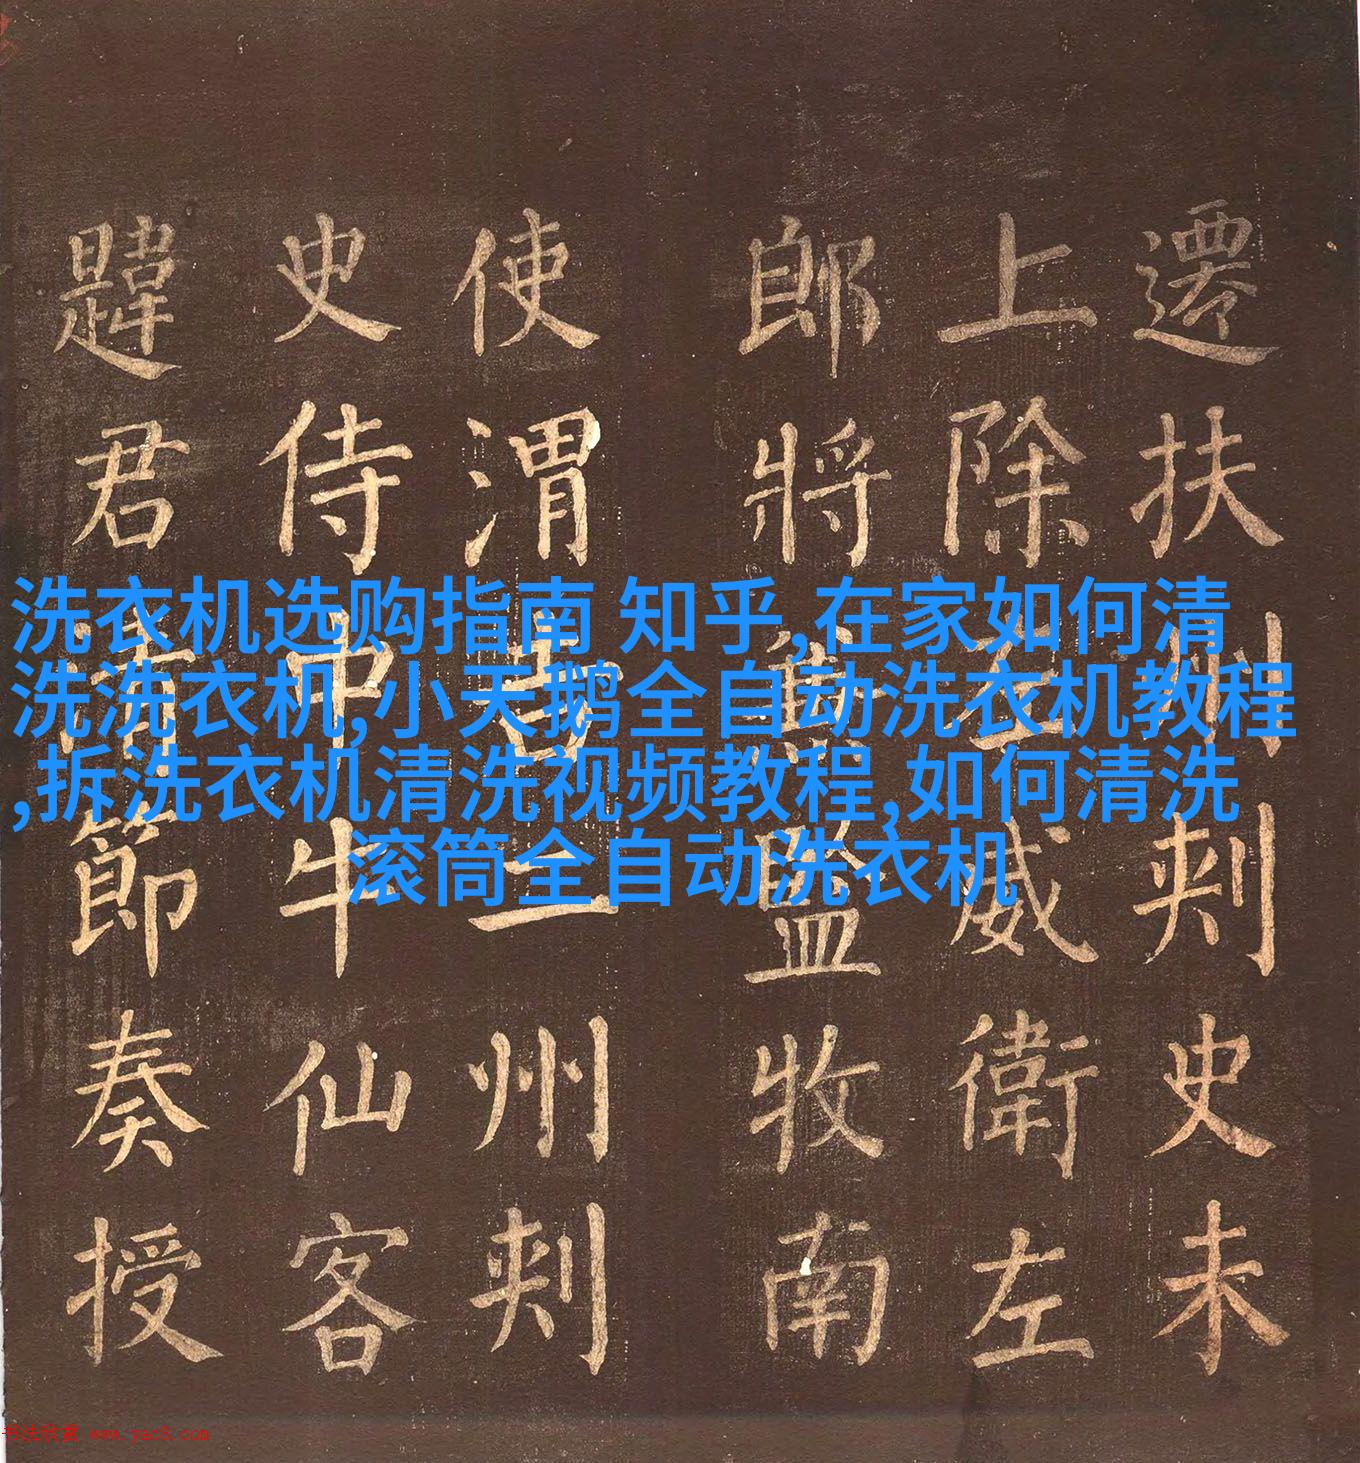 遷扶州刾史未
上除左威衛左
郎將兼監牧南
使渭吉二州刾
史侍中牛仙客
韙君清節奏授
洗衣机选购指南 知乎,在家如何清
洗洗衣机,小天鹅全自动洗衣机教程
,拆洗衣机清洗视频教程,如何清洗
滚筒全自动洗衣机
书法欣赏 www.yac8.com